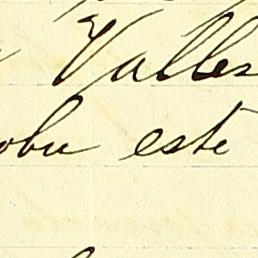 Valles
obu este